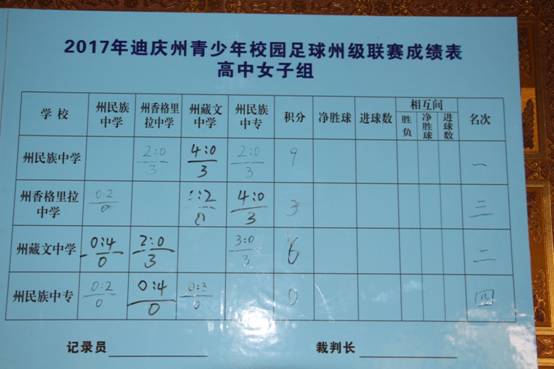 2017年迪庆州青少年校园足球州级联赛成绩表
高中女子组
学校 州民族中学 州香格里拉中学 州藏文中学 州民族中专 积分 净胜球 进球数 相互间 胜负 净胜球 进球数 名次
州民族中学 2:0/3 4:0/3 2:0/3 9 一
州香格里拉中学 0:2/0 :2/0 4:0/3 3 三
州藏文中学 0:4/0 2:0/3 3:0/3 6 二
州民族中专 0:2/0 0:4/0 0:3/0 0 四
记录员 裁判长